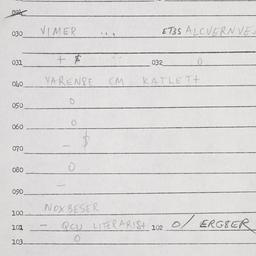 030 VIMER ... ETBS ALCVERNVE
031 + $ 032 0
040 YARENPE CM KATLET+
050 0
060 0
070 - $
080 0
090 -
100 NOXBESER
101 - QCU LITERARIST 102 0/ ERGBER
103 0